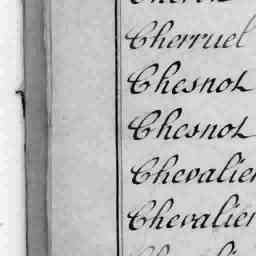 Cherruel
Chesnot
Chesnot
Chevalier
Chevalier